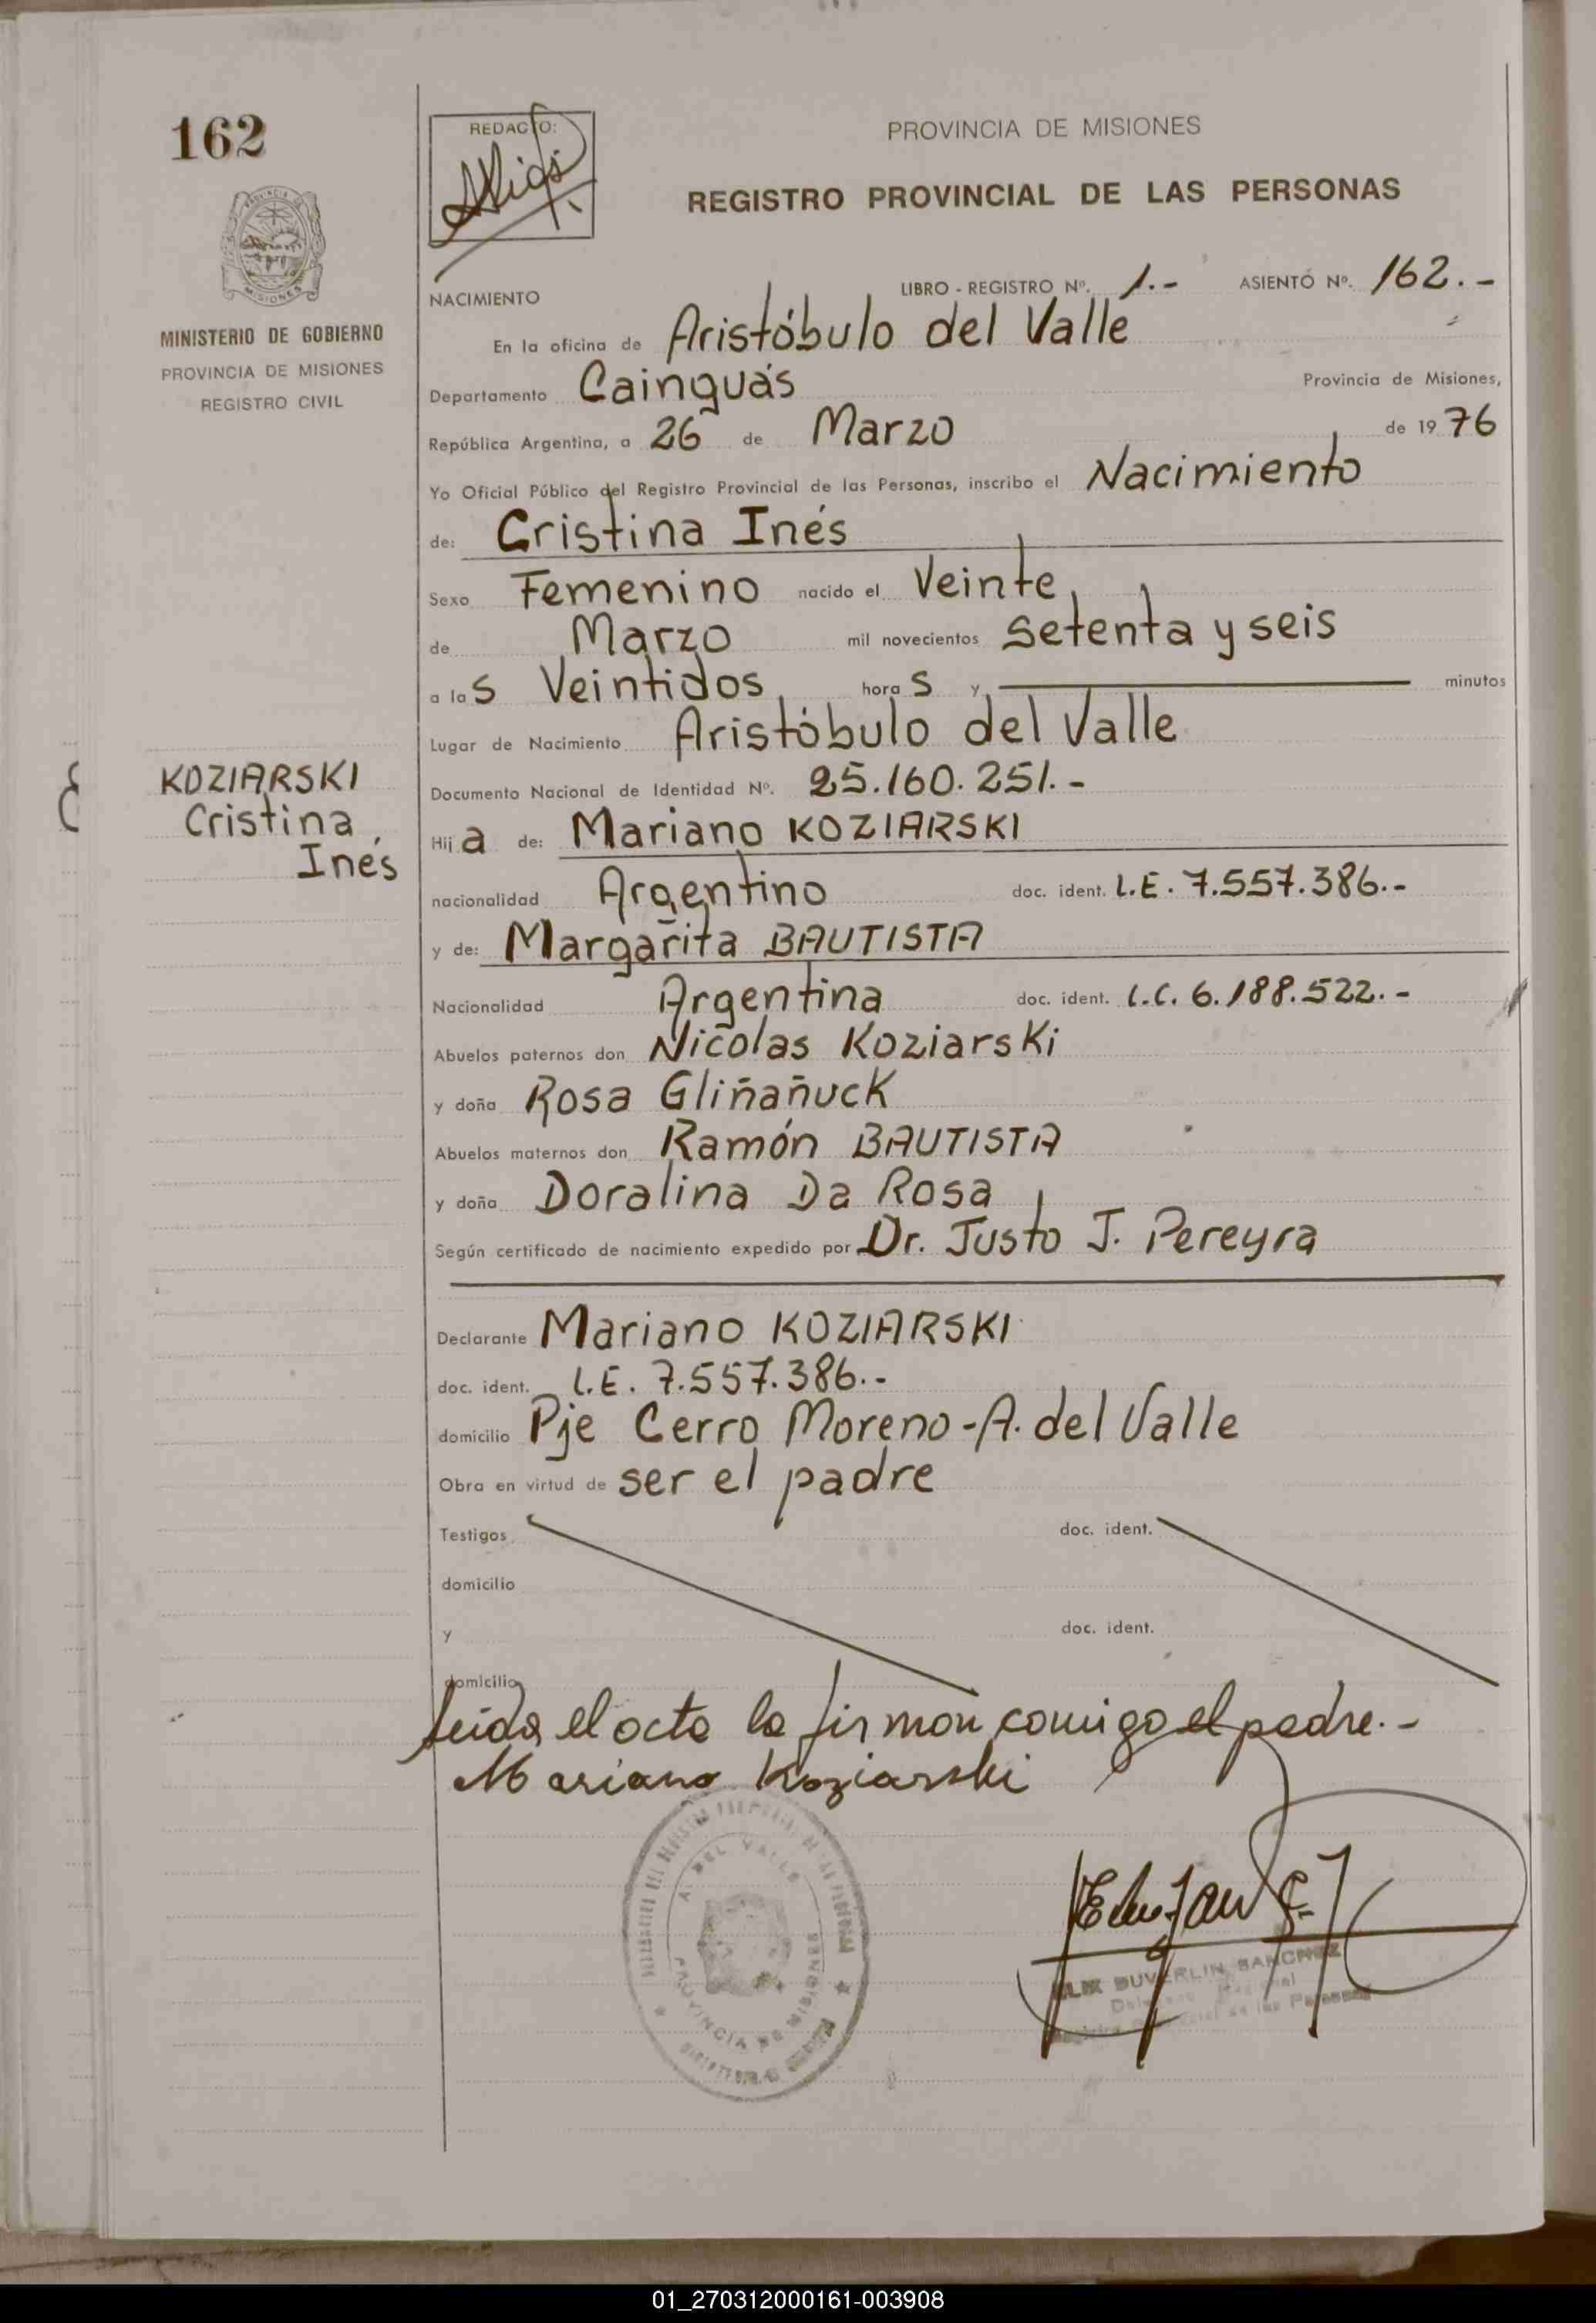 162
REDACTO:
PROVINCIA DE MISIONES
REGISTRO PROVINCIAL DE LAS PERSONAS
PROVINCIA
MISIONES
MINISTERIO DE GOBIERNO
PROVINCIA DE MISIONES
REGISTRO CIVIL
NACIMIENTO LIBRO - REGISTRO Nº. 1.- ASIENTO Nº. 162.-
En la oficina de Aristóbulo del Valle
Departamento Cainguás Provincia de Misiones,
República Argentina, a 26 de Marzo de 1976
Yo Oficial Público del Registro Provincial de las Personas, inscribo el Nacimiento
de: Cristina Inés
Sexo Femenino nacido el Veinte
de Marzo mil novecientos setenta y seis
a las Veintidos horas y minutos
Lugar de Nacimiento Aristóbulo del Valle
Documento Nacional de Identidad Nº. 25.160.251.-
KOZIARSKI
Cristina
Inés
Hija de: Mariano KOZIARSKI
nacionalidad Argentino doc. ident. L.E. 7.557.386.-
y de: Margarita BAUTISTA
Nacionalidad Argentina doc. ident. L.C. 6.188.522.-
Abuelos paternos don Nicolas Koziarski
y doña Rosa Gliñañuck
Abuelos maternos don Ramón BAUTISTA
y doña Doralina Da Rosa
Según certificado de nacimiento expedido por Dr. Justo J. Pereyra
Declarante Mariano KOZIARSKI
doc. ident. L.E. 7.557.386.-
domicilio Pje Cerro Moreno-A. del Valle
Obra en virtud de ser el padre
Testigos doc. ident.
domicilio
y doc. ident.
domicilio
Leida el acta la firman comigo el padre.-
Mariano Koziarski
A. DEL VALLE
PROVINCIA DE MISIONES
SANCHEZ
01_270312000161-003908